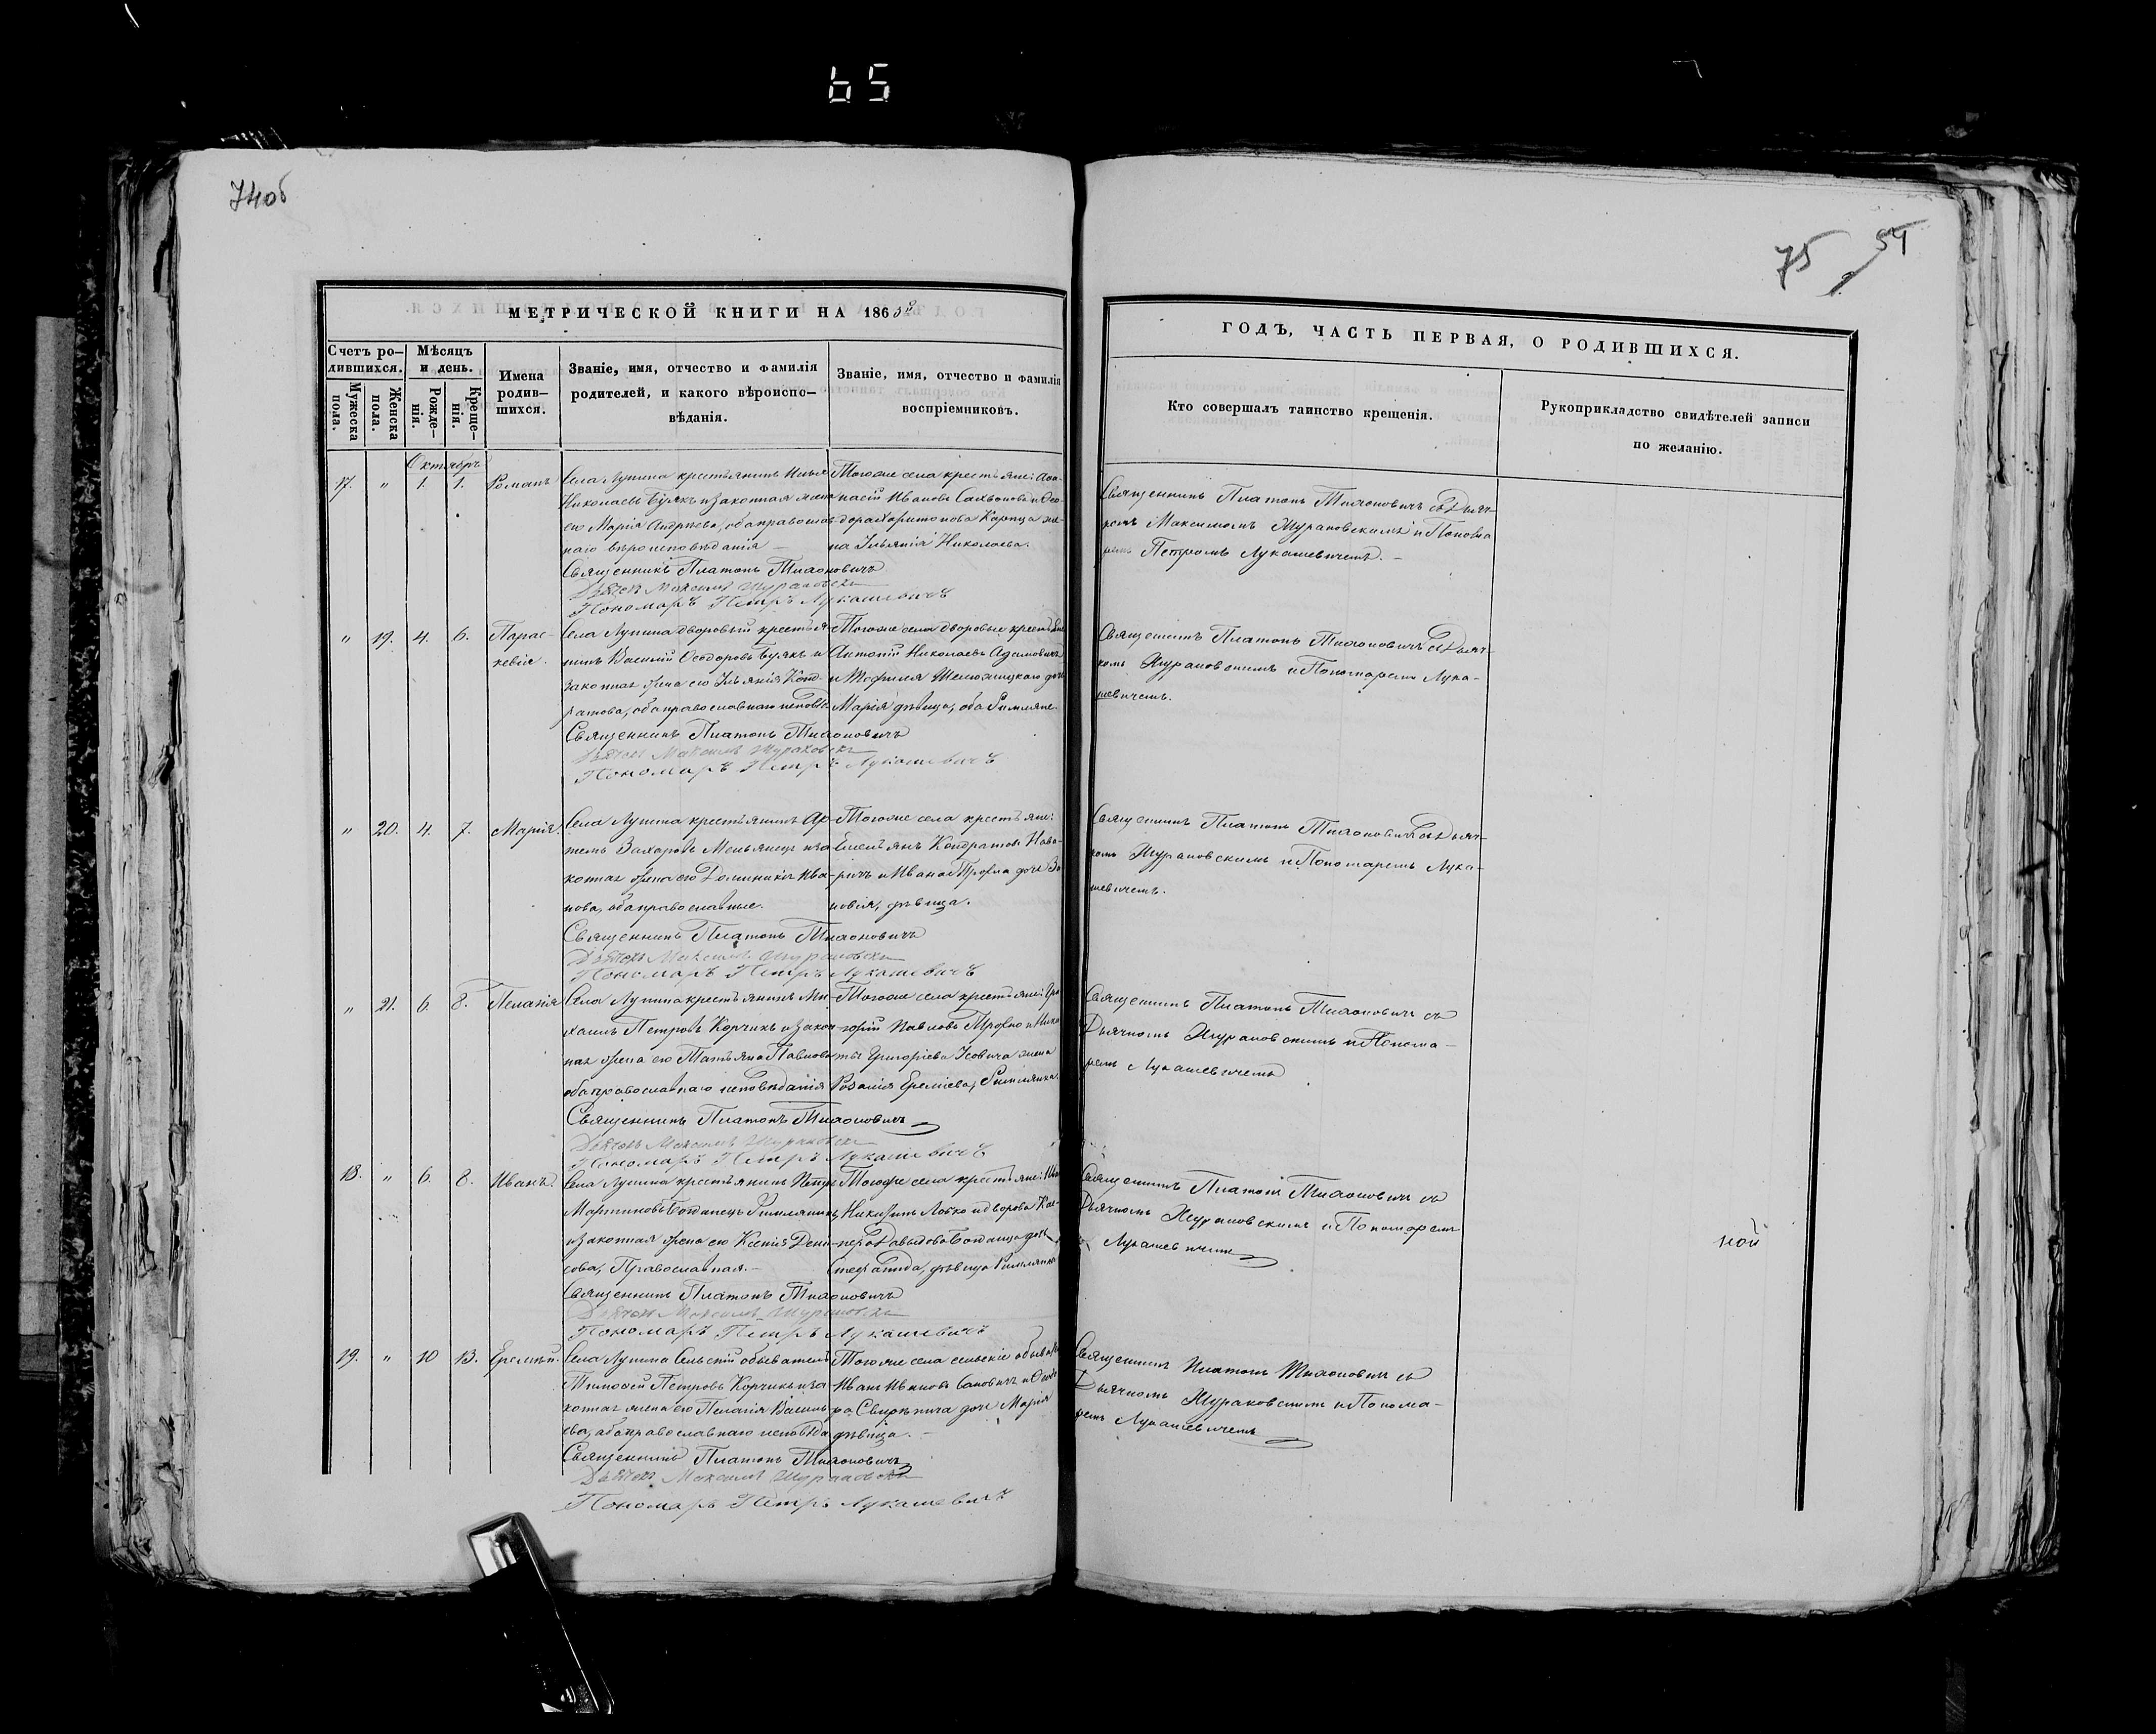 65
74об
75
54
МЕТРИЧЕСКОЙ КНИГИ НА 186
ГОДЪ, ЧАСТЬ ПЕРВАЯ, О РОДИВШИХСЯ.
Счетъ ро-
дившихся.
Мужеска
пола.
Женска
пола.
Мѣсяцъ
и день.
Рожде-
нія.
Креще-
нія.
Имена
родив-
шихся.
Званіе, имя, отчество и фамилія
родителей, и какого вѣроиспо-
вѣданія.
Званіе, имя, отчество и фамилія
воспріемниковъ.
Кто совершалъ таинство крещенія.
Рукоприкладство свидѣтелей записи
по желанію.
Октябрь
17. " 1. 1. Романъ
Села Лунина крестьянинъ Илья
Николаевъ Букъ и законная жена
его Марія Андреева, оба православ-
наго вѣроисповѣданія
Священникъ Платонъ Тихоновичъ
Дьячекъ Максимъ Жураковскій
Пономарь Петръ Лукашевичъ
Тогоже села крестьяне: Аѳа-
насій Ивановъ и Ѳео-
дора Харитонова Карпца же-
на Ульянія Николаева.
Священникъ Платонъ Тихоновичъ съ Дьяч-
комъ Максимомъ Жураковскимъ и Понома
ремъ Петромъ Лукашевичемъ.
" 19. 4. 6. Парас-
кевія.
Села Лунина дворовый крестья-
нинъ Василій Ѳеодоровъ Букъ и
законная жена его Ульянія Конд-
ратова, оба православнаго исповѣд
Священникъ Платонъ Тихоновичъ
Дьячекъ Максимъ Жураковскій
Пономарь Петръ Лукашевичъ
Тогоже села дворовые крестьяне
Антоній Николаевъ Адамовичъ
и дочь
Марія дѣвица, оба Римляне.
Священникъ Платонъ Тихоновичъ съ Дьяч-
комъ Жураковскимъ и Пономаремъ Лука-
шевичемъ.
" 20. 4. 7. Марія.
Села Лунина крестьянинъ Ар-
темъ Захаровъ и за-
конная жена его Доминикія Ива-
нова, оба православные.
Священникъ Платонъ Тихоновичъ
Дьячекъ Максимъ Жураковскій
Пономарь Петръ Лукашевичъ
Тогоже села крестьяне:
Емельянъ Кондратовъ
и Ивана дочь Зи
новія, дѣвица.
Священникъ Платонъ Тихоновичъ съ Дьяч-
комъ Жураковскимъ и Пономаремъ Лука-
шевичемъ.
" 21. 6. 8. Пелагія
Села Лунина крестьянинъ Ми-
хаилъ Петровъ Корчикъ и закон-
ная жена его Татьяна Павлова
оба православнаго исповѣданія
Священникъ Платонъ Тихоновичъ
Дьячекъ Максимъ Жураковскій
Пономарь Петръ Лукашевичъ
Тогоже села крестьяне: Гри
горій Павловъ и Ники
ты Григоріева Исовича жена
Розалія Еремѣева, Римлянка.
Священникъ Платонъ Тихоновичъ съ
Дьячкомъ Жураковскимъ и Понома-
ремъ Лукашевичемъ
18. " 6. 8. Иванъ.
Села Лунина крестьянинъ Петръ
Мартиновъ Богданецъ Римлянинъ
и законная жена его Ксенія Дени-
сова, Православная.
Священникъ Платонъ Тихоновичъ
Дьячекъ Максимъ Жураковскій
Пономарь Петръ Лукашевичъ
Тогоже села крестьяне:
Никитинъ Ловко и двороваго Кас-
пера Давыдова Богданца дочь
дѣвица Римлянка
Священникъ Платонъ Тихоновичъ съ
Дьячкомъ Жураковскимъ и Пономаремъ
Лукашевичемъ
ной
19. " 10 13. Еремѣй.
Села Лунина Сельскій обыватель
Тимоѳей Петровъ Корчикъ и за-
конная жена его Пелагія Василь
ева, оба православнаго исповѣда
Священникъ Платонъ Тихоновичъ
Дьячекъ Максимъ Жураковскій
Пономарь Петръ Лукашевичъ
Тогоже села сельскіе обыват
Иванъ Ивановъ и Ѳеодо
ра дочь Марія
дѣвица.
Священникъ Платонъ Тихоновичъ съ
Дьячкомъ Жураковскимъ и Понома-
ремъ Лукашевичемъ